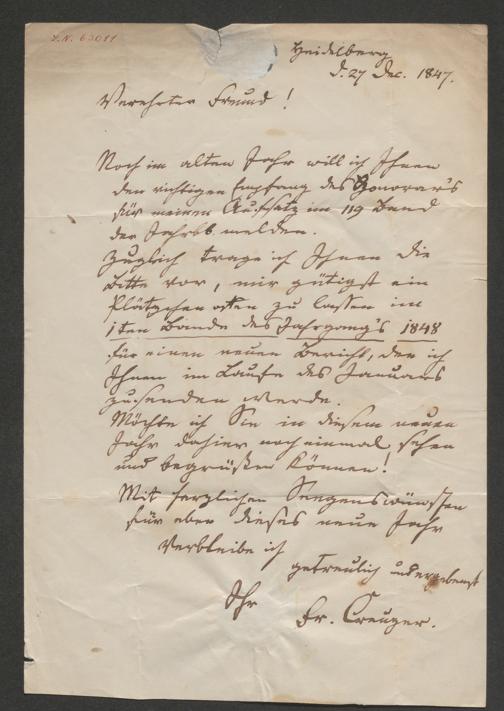 I.N. 63011
Heidelberg
d. 27 Dec. 1847.
Verehrter Freund!
Noch im alten Jahr will ich Ihnen
den richtigen Empfang des Honorar's
für meinen Aufsatz im 119 Band
der Jahrbb melden.
Zugleich trage ich Ihnen die
Bitte vor, mir gütigst ein
Plätzchen offen zu lassen im
1ten Bande des Jahrgang's 1848
für einen neuen Bericht, den ich
Ihnen im Laufe des Januars
zusenden werde.
Möchte ich Sie in diesem neuen
Jahr dahier noch einmal sehen
und begrüßen können!
Mit herzlichen Seegenswünschen
für eben dieses neue Jahr
verbleibe ich
getreulich und ergebenst
Ihr
Fr. Creuzer.